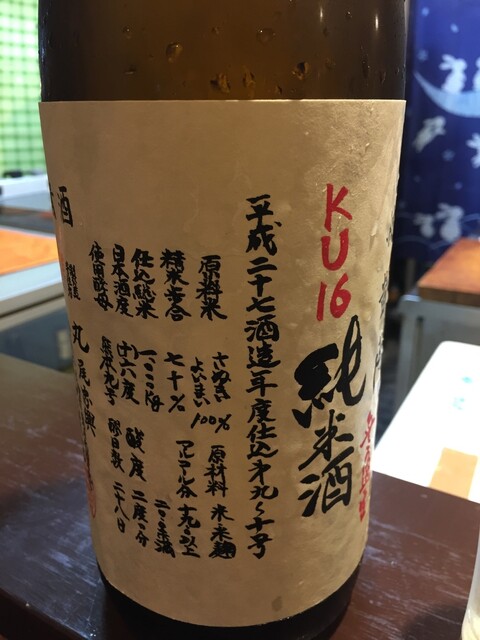 KU16
純米酒
平成二十七酒造年度仕込第九〜十号
原料米 さぬきよいまい 100% 原材料 米 米麹
精米歩合 七十% アルコール分 十九以上
二十未満
仕込純米 一〇〇〇kg
日本酒度 十六度 酸度 二度二分
使用酵母 熊本九号 醪日数 二十八日
丸尾忠興
酒